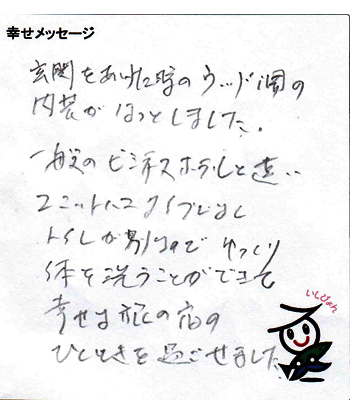 幸せメッセージ
玄関をあけた時のウッド調の
内装がほっとしました。
一般のビジネスホテルと違い
ユニットバスタイプではなく
トイレが別なので ゆっくり
体を洗うことができて
幸せな旅の宿の
ひとときを過ごせました